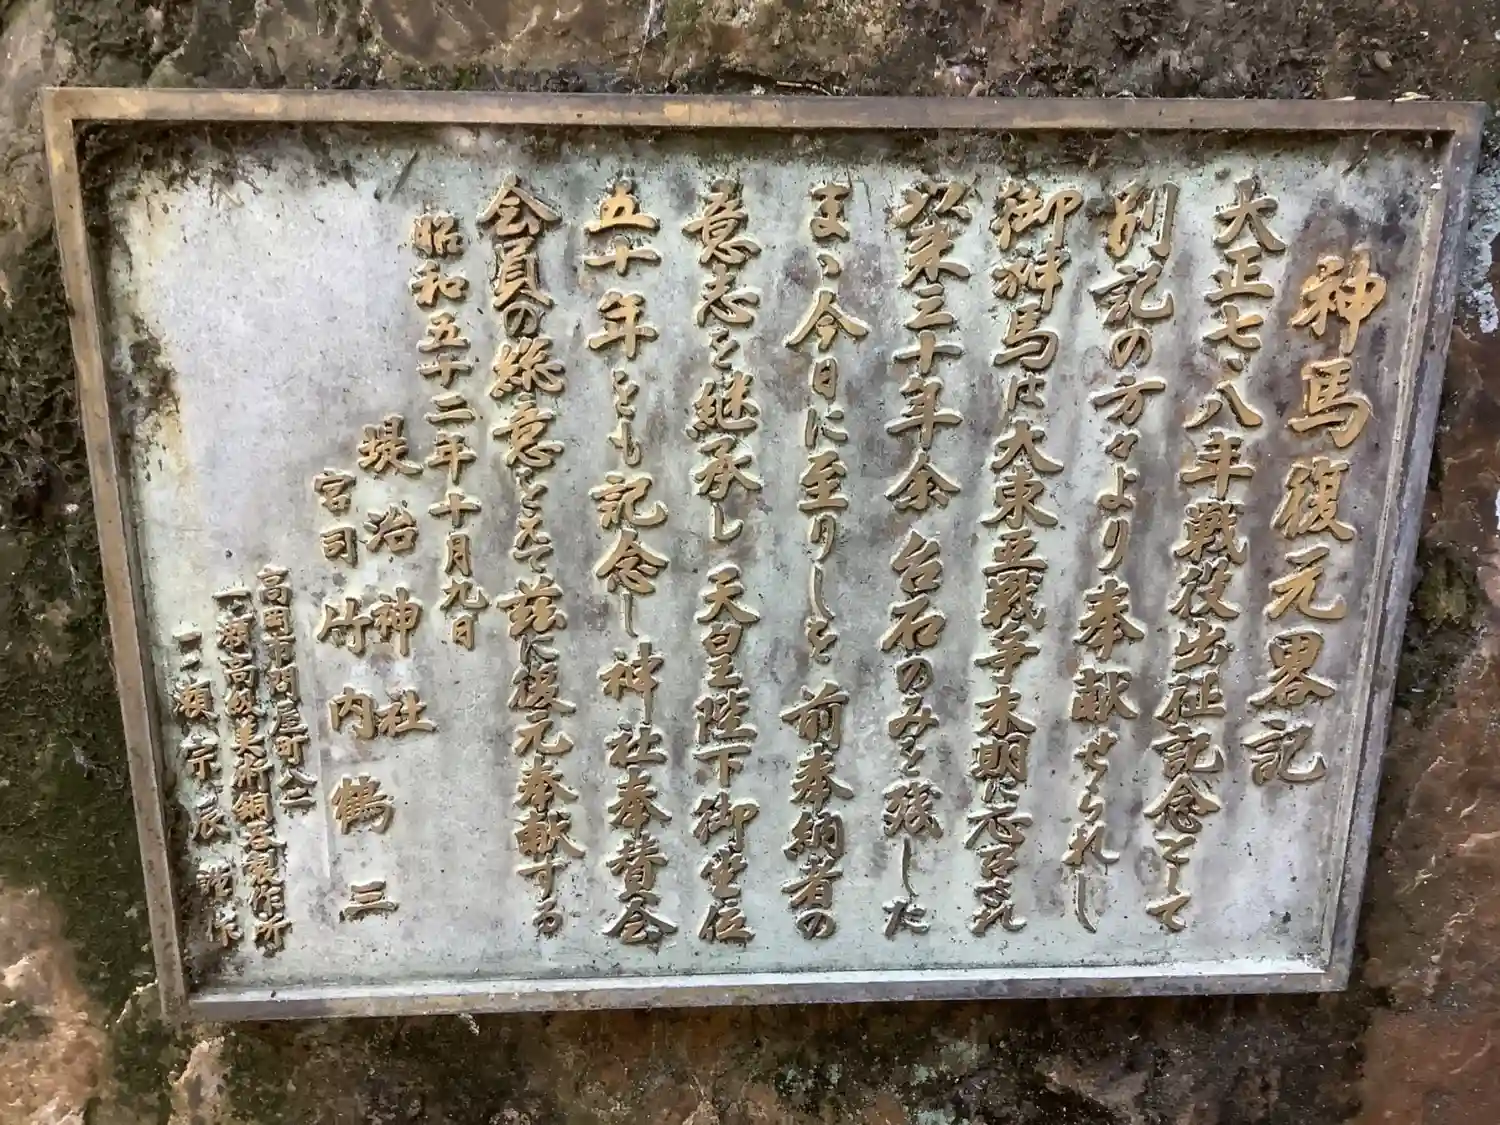 神馬復元畧記
大正七、八年戦役出征記念として
別記の方々より奉献せられし
御神馬は大東亜戦争末期に応召され
以来三十年余台石のみを残した
まゝ今日に至りしを前奉納者の
意志を継承し天皇陛下御在位
五十年をも記念し神社奉賛会
会員の総意をえて茲に復元奉献する
昭和五十二年十月九日
堤治神社
宮司 竹内鶴三
高岡市問屋町
一瀬 美術銅器製作所
一瀬宗辰謹作